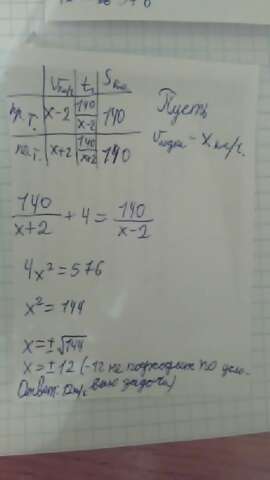 Vкм/ч tч Sкм
пр.т. x-2 140/x-2 140
по т. x+2 140/x+2 140
Пусть
Vлодки - x км/ч.
140/x+2 + 4 = 140/x-2
4x² = 576
x² = 144
x = ±√144
x = ±12 (-12 не подходит по усло-
вию задачи)
Ответ: